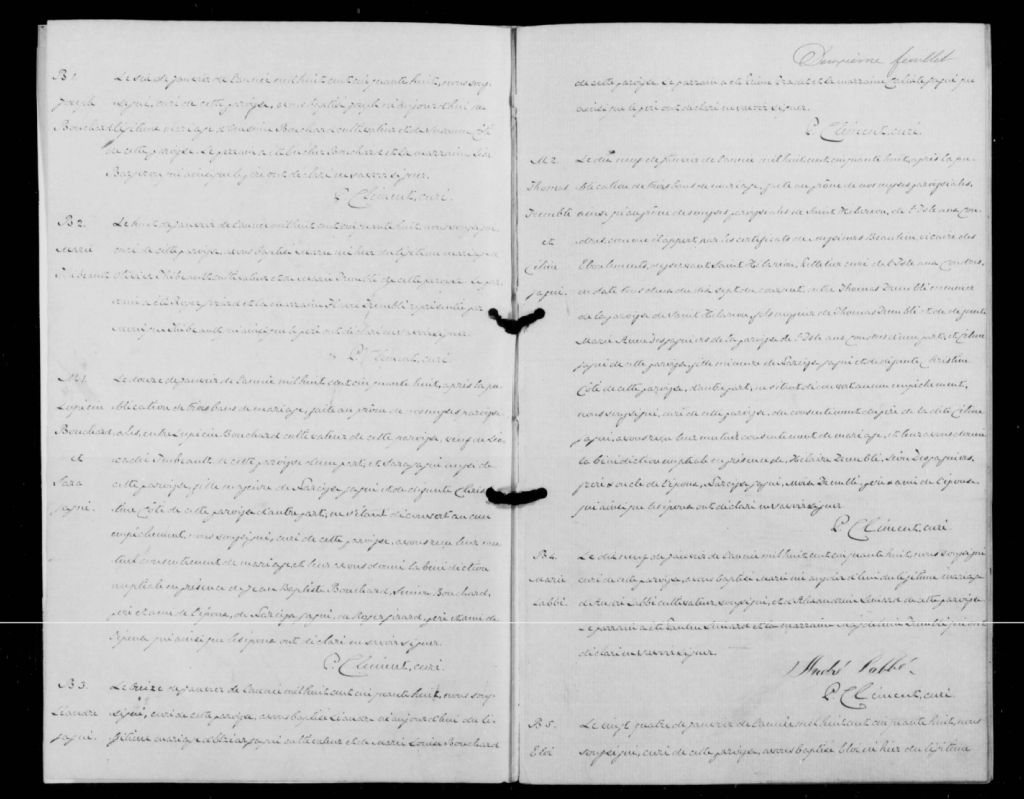 B 1. Le six de janvier de l'année mil huit cent cinquante huit, nous sous-
Joseph signé, curé de cette paroisse, avons baptisé Joseph né aujourd'hui du
Bouchard légitime mariage d'Onésime Bouchard cultivateur et de Côté
de cette paroisse. Le parrain a été Bouchard et la marraine
qui ainsi que le père ont déclaré ne savoir signer.
P. Clément, curé.
B 2. Le huit de janvier de l'année mil huit cent cinquante huit, nous soussigné,
Marie curé de cette paroisse, avons baptisé Marie née hier du légitime mariage d'
Imbeault Imbeault cultivateur et de Marie Tremblé de cette paroisse. Le par-
rain a été Roger Girard et la marraine Tremblé représentée par
Imbeault, qui ainsi que le père ont déclaré ne savoir signer.
P. Clément, curé.
M 1. Le douze de janvier de l'année mil huit cent cinquante huit, après la pu-
Lupicin blication de trois bans de mariage, faite au prône de nos messes paroissi-
Bouchard ales, entre Lupicin Bouchard cultivateur de cette paroisse, veuf de Léo-
et cadie Imbeault, de cette paroisse d'une part, et Sara Gagné aussi de
Sara cette paroisse, fille majeure de Narcisse Gagné et de défunte Chris-
Gagné. tine Côté de cette paroisse d'autre part, ne s'étant découvert aucun
empêchement, nous soussigné, curé de cette paroisse, avons reçu leur mu-
tuel consentement de mariage, et leur avons donné la bénédiction
nuptiale en présence de Jean Baptiste Bouchard, Bouchard,
père et ami de l'époux, de Narcisse Gagné, de Roger Girard, père et ami de
l'épouse, qui ainsi que les époux ont déclaré ne savoir signer.
P. Clément, curé.
B 3. Le treize de janvier de l'année mil huit cent cinquante huit, nous sous-
Léandre signé, curé de cette paroisse, avons baptisé Léandre né aujourd'hui du lé-
Gagné. gitime mariage d'Elzéar Gagné cultivateur et de Marie Louise Bouchard
Deuxième feuillet
de cette paroisse. Le parrain a été et la marraine Gagné qui
ainsi que le père ont déclaré ne savoir signer.
P. Clément, curé.
M 2. Le dix neuf de janvier de l'année mil huit cent cinquante huit, après la pu-
Thomas blication de trois bans de mariage, faite au prône de nos messes paroissiales,
Tremblé ainsi qu'au prône des messes paroissiales de Saint Hilarion, de l'Isle aux Cou-
et dres, comme il appert par les certificats de Messieurs Beaulieu, vicaire des
Céline Eboulements, desservant Saint Hilarion, Pelletier curé de l'Isle aux Coudres,
Gagné. en date tous deux du dix sept du courant, entre Thomas Tremblé mineur
de la paroisse de Saint Hilarion, fils mineur de Thomas Tremblé et de défunte
Marie Anne Desgagniers de la paroisse de l'Isle aux Coudres d'une part, et Céline
Gagné de cette paroisse, fille mineure de Narcisse Gagné et de défunte Christine
Côté de cette paroisse, d'autre part, ne s'étant découvert aucun empêchement,
nous soussigné, curé de cette paroisse, du consentement du père de la dite Céline
Gagné, avons reçu leur mutuel consentement de mariage, et leur avons donné
la bénédiction nuptiale en présence de Hilaire Tremblé, Desgagniers,
père et oncle de l'époux, Narcisse Gagné, Moïse Tremblé, père et ami de l'épouse,
qui ainsi que les époux ont déclaré ne savoir signer.
P. Clément, curé.
B 4. Le dix neuf de janvier de l'année mil huit cent cinquante huit, nous soussigné
Marie curé de cette paroisse, avons baptisé Marie née aujourd'hui du légitime mariage
Labbé d'André Labbé cultivateur soussigné, et d'Alexandrine Simard de cette paroisse.
Le parrain a été Paulin Simard et la marraine Magdeleine Tremblé qui ont
déclaré ne savoir signer.
André Labbé
P. Clément, curé.
B 5. Le vingt quatre de janvier de l'année mil huit cent cinquante huit, nous
Eloi soussigné, curé de cette paroisse, avons baptisé Eloi né hier du légitime